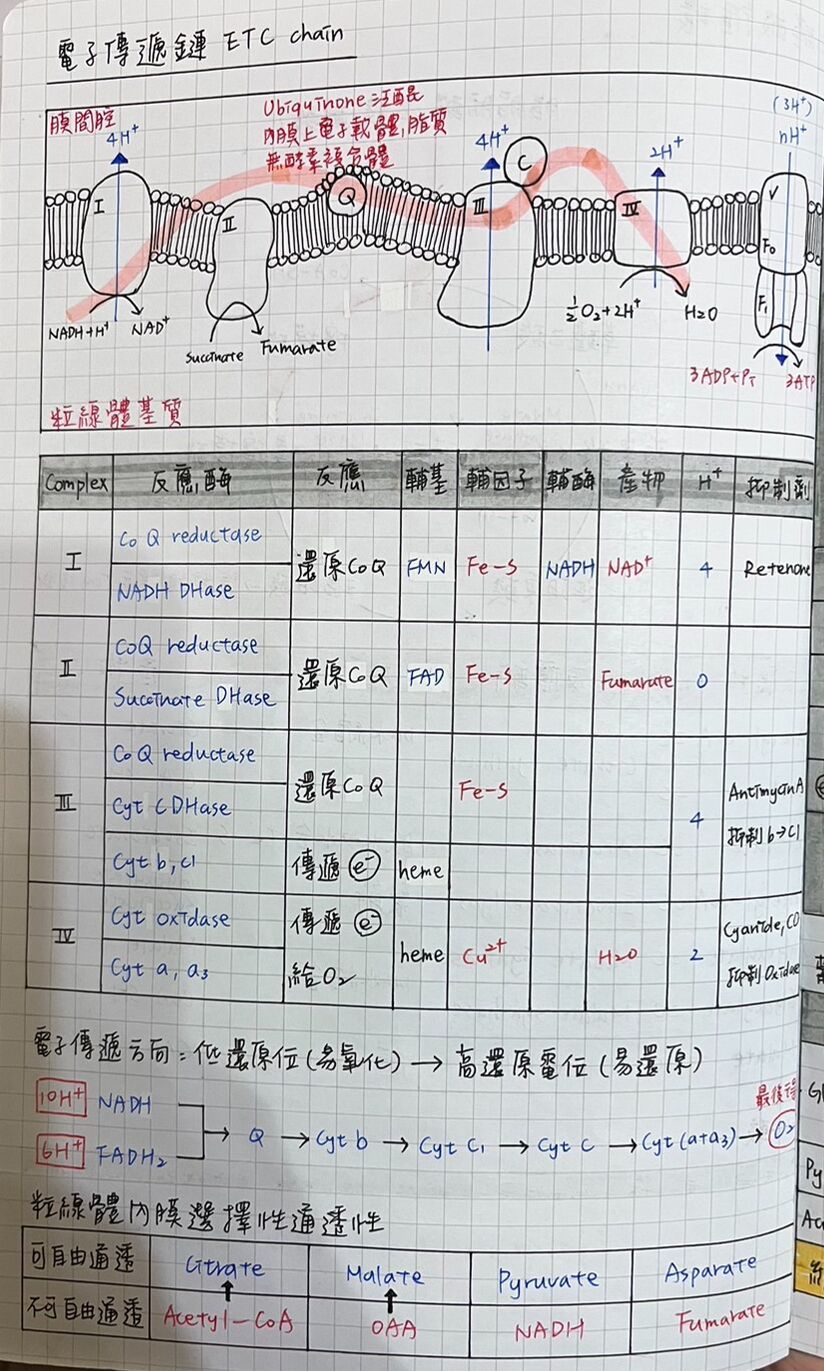 電子傳遞鏈 ETC chain
膜間腔
4H⁺
Ubiquinone 泛醌
內膜上電子載體, 脂質
無酵素複合體
4H⁺
C
2H⁺
(3H⁺)
nH⁺
I
II
Q
III
IV
V
F₀
F₁
NADH+H⁺
NAD⁺
Succinate
Fumarate
½O₂+2H⁺
H₂O
3ADP+Pi
3ATP
粒線體基質
Complex 反應酶 反應 輔基 輔因子 輔酶 產物 H⁺ 抑制劑
I
CoQ reductase
NADH DHase
還原CoQ FMN Fe-S NADH NAD⁺ 4 Retenone
II
CoQ reductase
Succinate DHase
還原CoQ FAD Fe-S Fumarate 0
III
CoQ reductase
Cyt C DHase
還原CoQ Fe-S
Cyt b, c1
傳遞 e⁻ heme
4
Antimycin A
抑制 b→C1
IV
Cyt oxidase
Cyt a, a₃
傳遞 e⁻
給O₂
heme Cu²⁺ H₂O 2
Cyanide, CO
抑制 Oxidase
電子傳遞方向: 低還原位(易氧化) → 高還原電位(易還原)
10H⁺ NADH
6H⁺ FADH₂
→ Q → Cyt b → Cyt C₁ → Cyt C → Cyt (a+a₃) → O₂
粒線體內膜選擇性通透性
可自由通透 Citrate Malate Pyruvate Asparate
不可自由通透 Acetyl-CoA OAA NADH Fumarate
Py